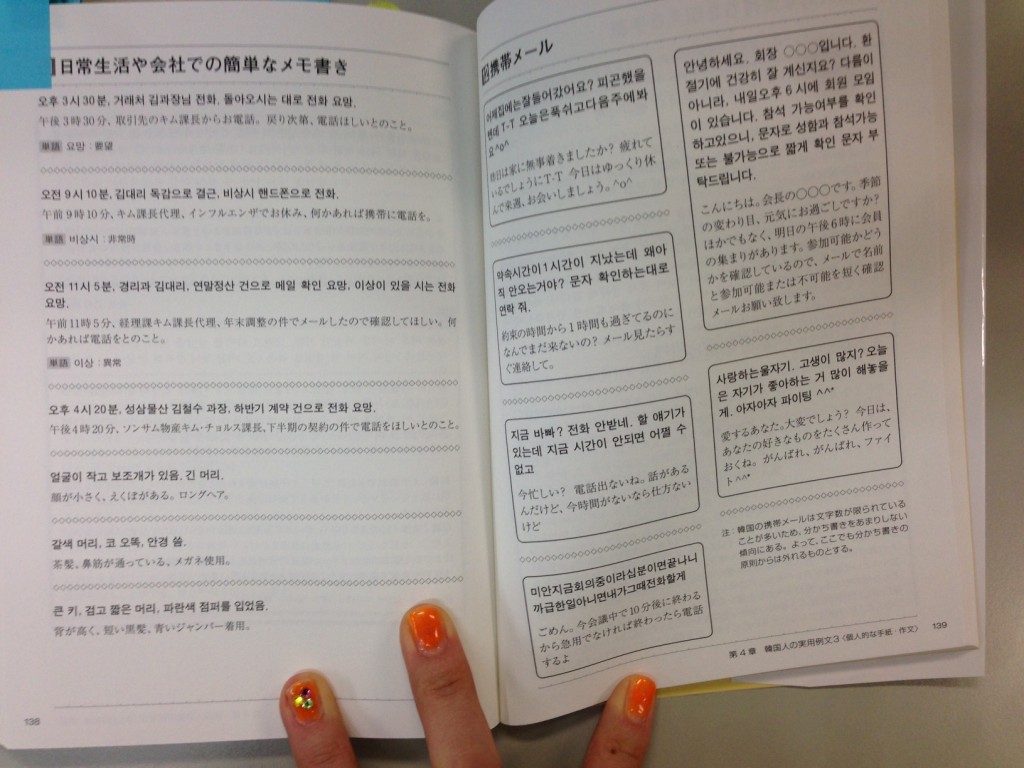 日常生活や会社での簡単なメモ書き
오후 3시 30분, 거래처 김과장님 전화. 돌아오시는 대로 전화 요망.
午後3時30分、取引先のキム課長からお電話。戻り次第、電話ほしいとのこと。
単語 요망 : 要望
오전 9시 10분, 김대리 독감으로 결근, 비상시 핸드폰으로 전화.
午前9時10分、キム課長代理、インフルエンザでお休み、何かあれば携帯に電話を。
単語 비상시 : 非常時
오전 11시 5분, 경리과 김대리, 연말정산 건으로 메일 확인 요망, 이상이 있을 시는 전화
요망.
午前11時5分、経理課キム課長代理、年末調整の件でメールしたので確認してほしい。何
かあれば電話をとのこと。
単語 이상 : 異常
오후 4시 20분, 성삼물산 김철수 과장, 하반기 계약 건으로 전화 요망.
午後4時20分、ソンサム物産キム・チョルス課長、下半期の契約の件で電話をほしいとのこと。
얼굴이 작고 보조개가 있음. 긴 머리.
顔が小さく、えくぼがある。ロングヘア。
갈색 머리, 코 오똑, 안경 씀.
茶髪、鼻筋が通っている、メガネ使用。
큰 키, 검고 짧은 머리, 파란색 점퍼를 입었음.
背が高く、短い黒髪、青いジャンパー着用。
138
携帯メール
어제집에는잘들어갔어요? 피곤했을
텐데 T-T 오늘은푹쉬고다음주에봐
요^o^
昨日は家に無事着きましたか? 疲れて
いるでしょうにT-T 今日はゆっくり休
んで来週、お会いしましょう。^o^
약속시간이1시간이 지났는데 왜아
직 안오는거야? 문자 확인하는대로
연락 줘.
約束の時間から1時間も過ぎてるのに
なんでまだ来ないの? メール見たらす
ぐ連絡して。
지금 바빠? 전화 안받네. 할 얘기가
있는데 지금 시간이 안되면 어쩔 수
없고
今忙しい? 電話出ないね。話がある
んだけど、今時間がないなら仕方ない
けど
미안지금회의중이라십분이면끝나니
까급한일아니면내가그때전화할게
ごめん。今会議中で10分後に終わる
から急用でなければ終わったら電話
するよ
안녕하세요. 회장 ○○○입니다. 환
절기에 건강히 잘 계신지요? 다름이
아니라, 내일오후 6시에 회원 모임
이 있습니다. 참석 가능여부를 확인
하고있으니, 문자로 성함과 참석가능
또는 불가능으로 짧게 확인 문자 부
탁드립니다.
こんにちは。会長の○○○です。季節
の変わり目、元気にお過ごしですか?
ほかでもなく、明日の午後6時に会員
の集まりがあります。参加可能かどう
かを確認しているので、メールで名前
と参加可能または不可能を短く確認
メールお願い致します。
사랑하는울자기. 고생이 많지? 오늘
은 자기가 좋아하는 거 많이 해놓을
게. 아자아자 파이팅 ^^*
愛するあなた。大変でしょう? 今日は、
あなたの好きなものをたくさん作って
おくね。がんばれ、がんばれ、ファイ
ト^^*
注：韓国の携帯メールは文字数が限られている
ことが多いため、分かち書きをあまりしない
傾向にある。よって、ここでも分かち書きの
原則からは外れるものとする。
第4章 韓国人の実用例文3〈個人的な手紙・作文〉 139